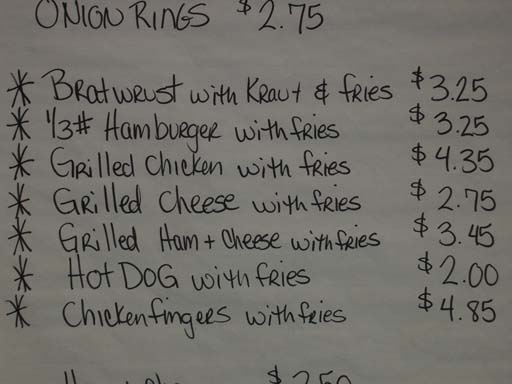 ONION RINGS $2.75
* Bratwrust with Kraut & fries $3.25
* 1/3# Hamburger with fries $3.25
* Grilled Chicken with fries $4.35
* Grilled Cheese with fries $2.75
* Grilled Ham + Cheese with fries $3.45
* HOT DOG with fries $2.00
* Chickenfingers with fries $4.85